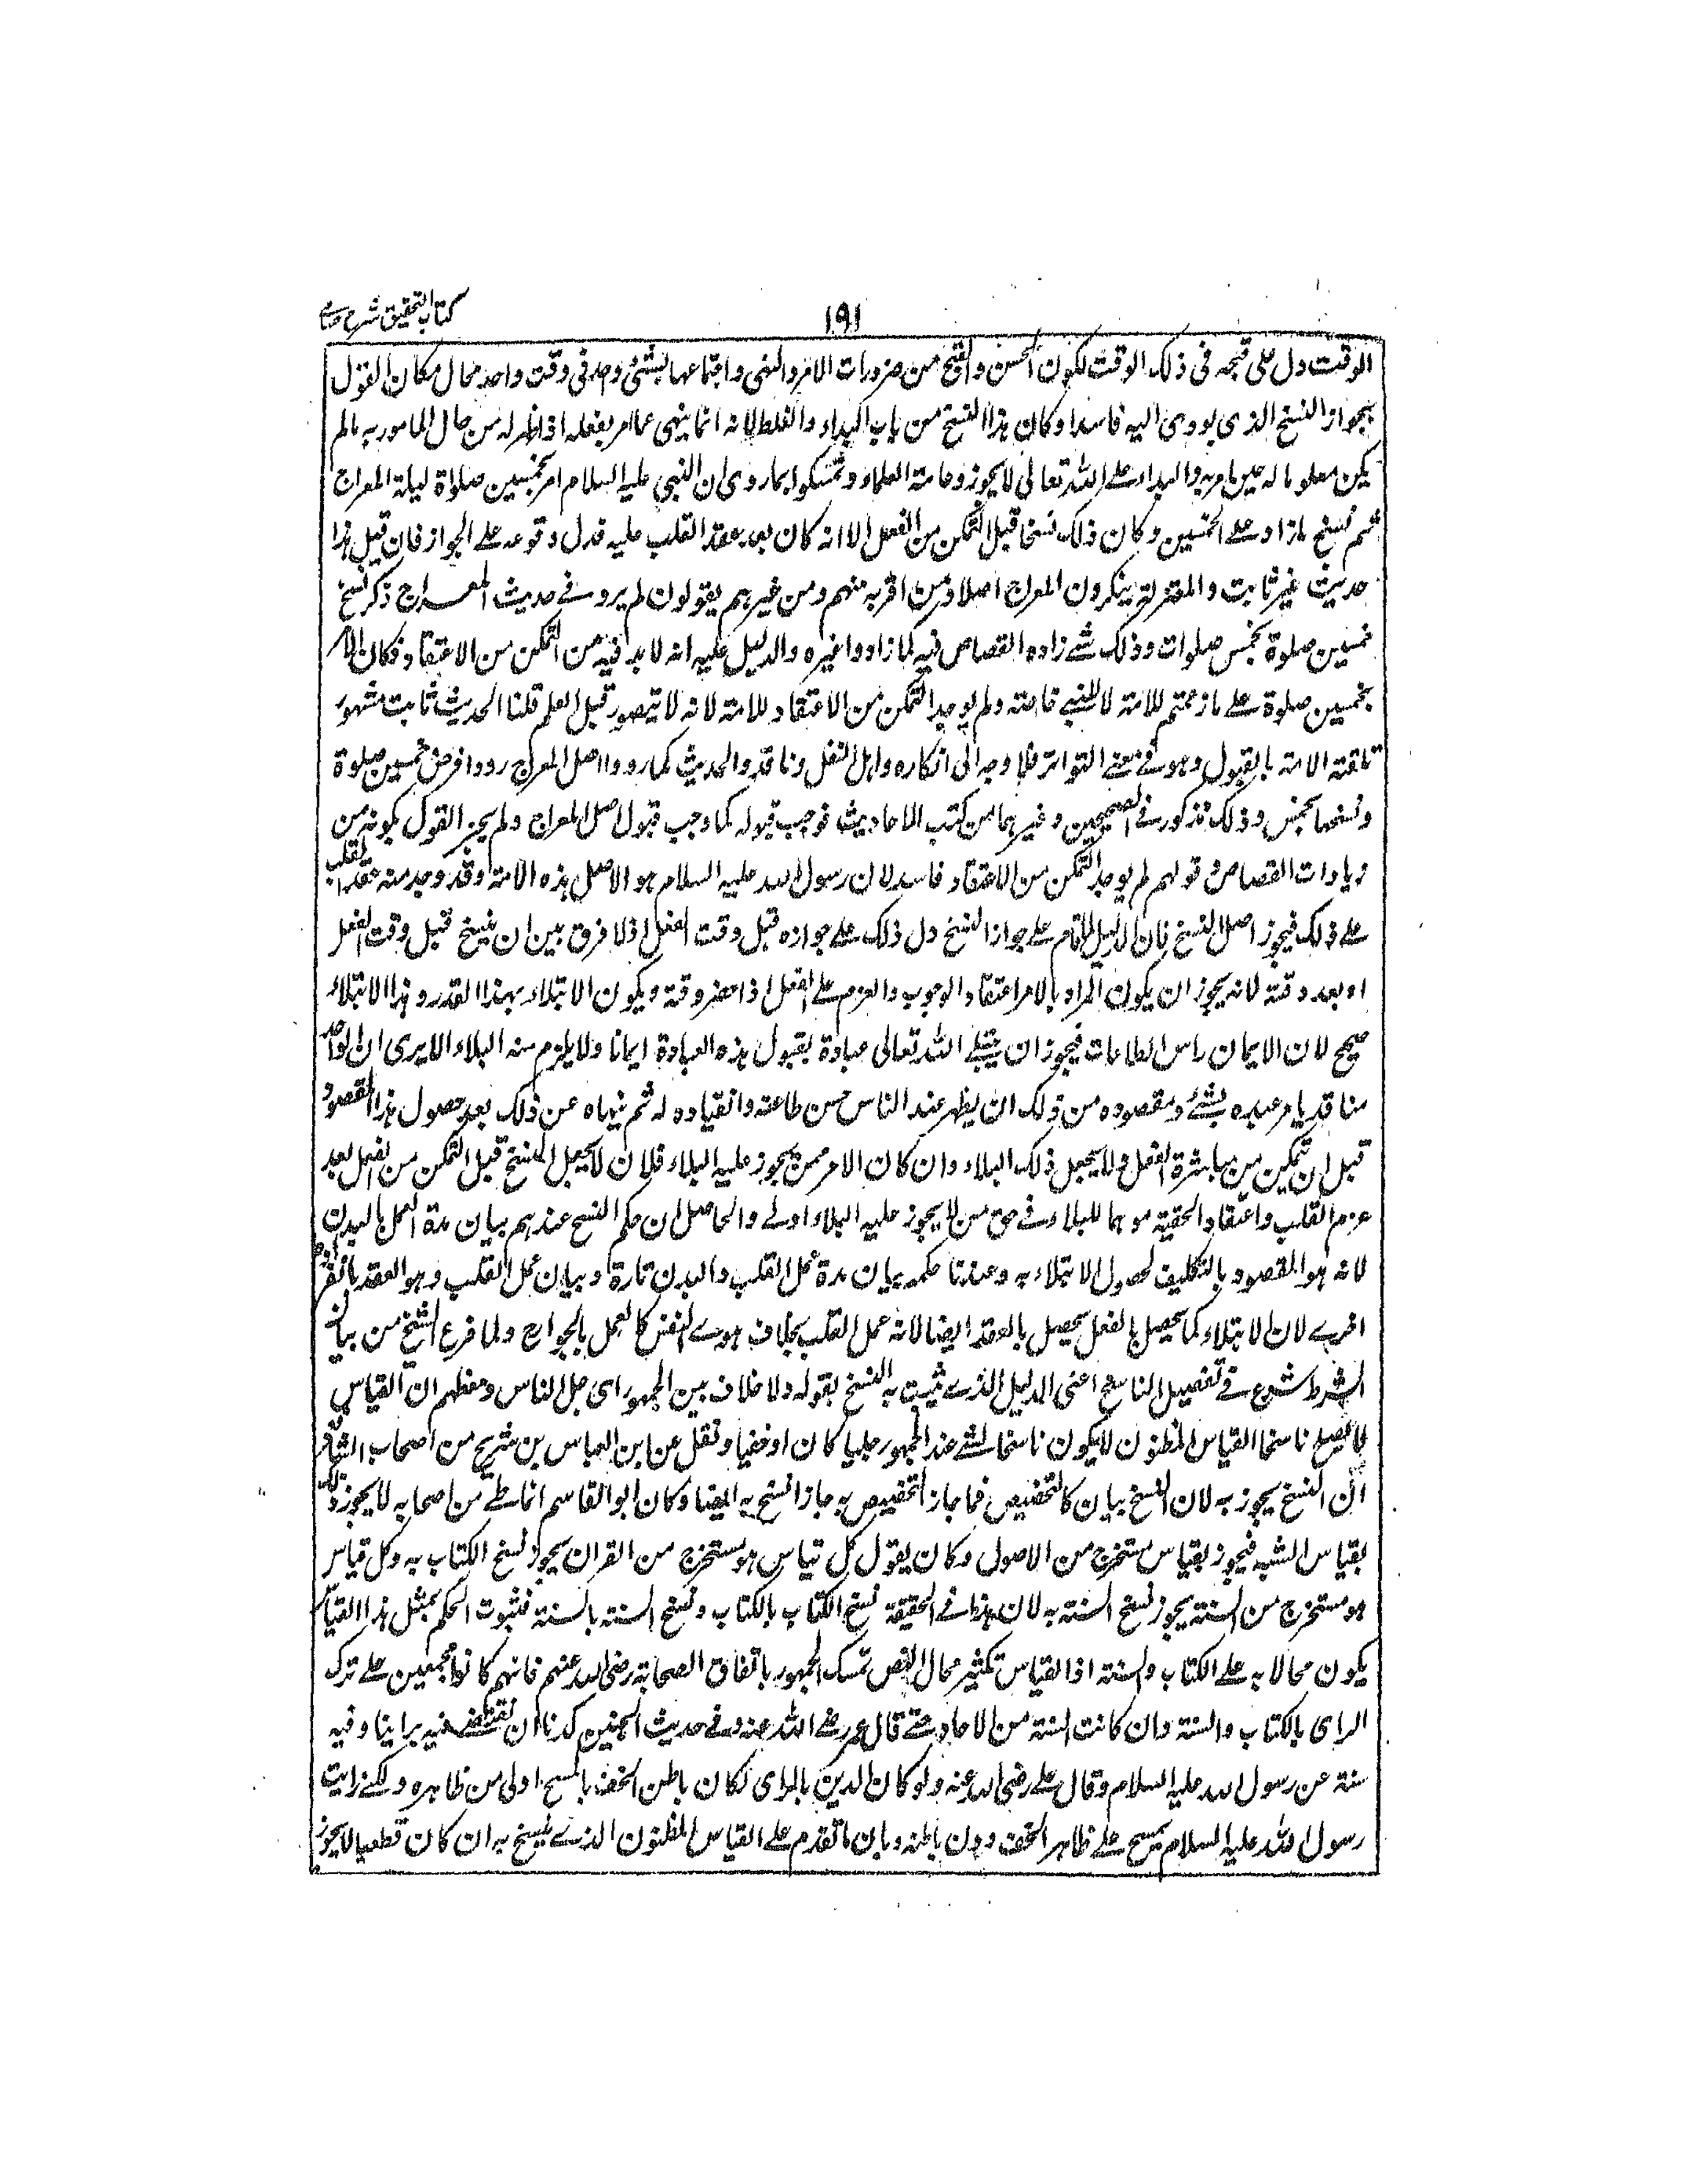 كتاب التحقيق شرح حسامی
١٩١
الوقت دل على قبحه فى ذلك الوقت لكون الحسن والقبح من ضرورات الامر والنهى واجتماعهما لشئ واحد فى وقت واحد محال فكان القول
بجواز النسخ الذى يودى اليه فاسدا وكان هذا النسخ من باب البداء والغلط لانه انما ينهى عما امر بفعله اذا ظهر له من حال المامور به ما لم
يكن معلوما له حين امر به والبداء على الله تعالى لا يجوز وعامة العلماء وتمسكوا بما روى ان النبى عليه السلام امر بخمسين صلواة ليلة المعراج
ثم نسخ ما زاد على الخمسين وكان ذلك نسخا قبل التمكن من الفعل الا انه كان بعد عقد القلب عليه فدل وقوعه على الجواز فان قيل هذا
حديث غير ثابت والمعتزلة ينكرون المعراج اصلا ومن اقر به منهم ومن غيرهم يقولون لم يرو فى حديث المعراج ذكر نسخ
خمسين صلوة بخمس صلوات وذلك شئ زاده القصاص فيه كما زادوا غيره والدليل عليه انه لا بد فيه من التمكن من الاعتقاد فكان الامر
بخمسين صلوة على ما زعمتم للامة لا للنبى خاصة ولم يوجد التمكن من الاعتقاد للامة لانه لا يتصور قبل العلم قلنا الحديث ثابت مشهور
تلقته الامة بالقبول وهو فى معنى التواتر فلا وجه الى انكاره واهل النقل وناقدو الحديث كما رووا اصل المعراج رووا فرض خمسين صلوة
ونسخها بخمس وذلك مذكور فى الصحيحين وغيرهما من كتب الاحاديث فوجب قبوله كما وجب قبول اصل المعراج ولم يجز القول بكونه من
زيادات القصاص وقولهم لم يوجد التمكن من الاعتقاد فاسد لان رسول الله عليه السلام هو الاصل بهذه الامة وقد وجد منه عقد القلب
على ذلك فيجوز اصل النسخ فان الدليل لما قام على جواز النسخ دل ذلك على جوازه قبل وقت الفعل اذ لا فرق بين ان ينسخ قبل وقت الفعل
او بعد وقته لانه يجوز ان يكون المراد بالامر اعتقاد الوجوب والعزم على الفعل اذا حضر وقته ويكون الابتلاء بهذا القدر وهذا الابتلاء
صحيح لان الايمان راس الطاعات فيجوز ان يبتلى الله تعالى عباده بقبول هذه العبادة ايمانا ولا يلزم منه البداء الا يرى ان الواحد
منا قد يامر عبده بشئ ومقصوده من ذلك ان يظهر عند الناس حسن طاعته وانقياده له ثم ينهاه عن ذلك بعد حصول هذا المقصود
قبل ان يتمكن من مباشرة الفعل ولا يجعل ذلك البداء وان كان الامر ممن يجوز عليه البداء فلان لا يجعل النسخ قبل التمكن من الفعل بعد
عزم القلب واعتقاد الحقية موهما للبداء فى حق من لا يجوز عليه البداء اولى والحاصل ان حكم النسخ عندهم بيان مدة العمل بالبدن
لانه هو المقصود بالتكليف لحصول الابتلاء به وعندنا حكمه بيان مدة عمل القلب والبدن تارة وبيان عمل القلب وهو العقد بانفراده
اخرى لان الابتلاء كما يحصل بالفعل يحصل بالعقد ايضا لانه عمل القلب بخلاف هوى النفس كالعمل بالجوارح ولما فرغ الشيخ من بيان
الشرط شرع فى تفصيل الناسخ اعنى الدليل الذى يثبت به النسخ بقوله ولا خلاف بين الجمهور اى جل الناس ومعظمهم ان القياس
لا يصلح ناسخا القياس المظنون لا يكون ناسخا لشئ عند الجمهور جليا كان او خفيا ونقل عن ابن العباس بن شريح من اصحاب الشافعى
ان النسخ يجوز به لان النسخ بيان كالتخصيص فما جاز التخصيص به جاز النسخ به ايضا وكان ابو القاسم انماطى من اصحابه لا يجوز ذلك
بقياس الشبه فيجوز بقياس مستخرج من الاصول وكان يقول كل قياس هو مستخرج من القران يجوز نسخ الكتاب به وكل قياس
هو مستخرج من السنة يجوز نسخ السنة به لان هذا فى الحقيقة نسخ الكتاب بالكتاب ونسخ السنة بالسنة فثبوت الحكم بمثل هذا القياس
يكون محالا به على الكتاب والسنة اذ القياس تكثير محال النص تمسك الجمهور باتفاق الصحابة رضى الله عنهم فانهم كانوا مجمعين على ترك
الراى بالكتاب والسنة وان كانت السنة من الاحاد حتى قال عمر رضى الله عنه فى حديث الجنين كدنا ان نقضى فيه براينا وفيه
سنة عن رسول الله عليه السلام وقال على رضى الله عنه ولو كان الدين بالراى لكان باطن الخف بالمسح اولى من ظاهره ولكنى رايت
رسول الله عليه السلام يمسح على ظاهر الخف دون باطنه وبان ما تقدم على القياس المظنون الذى ينسخ به ان كان قطعيا لا يجوز